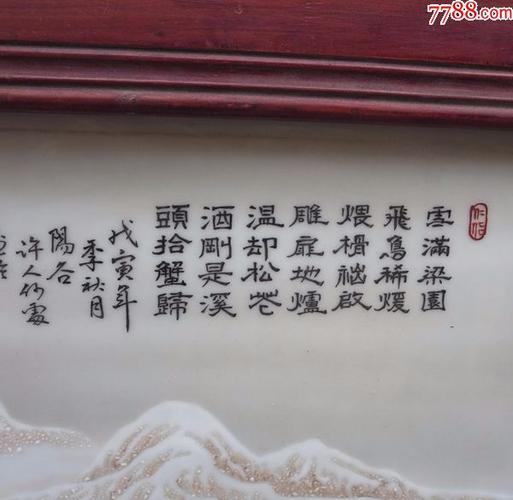 7788.com
雪滿梁園
飛鳥稀煖
煨榾啟
雕扉地爐
溫却松花
酒剛是溪
頭拾蟹歸
戊寅年
季秋月
陽谷
許人